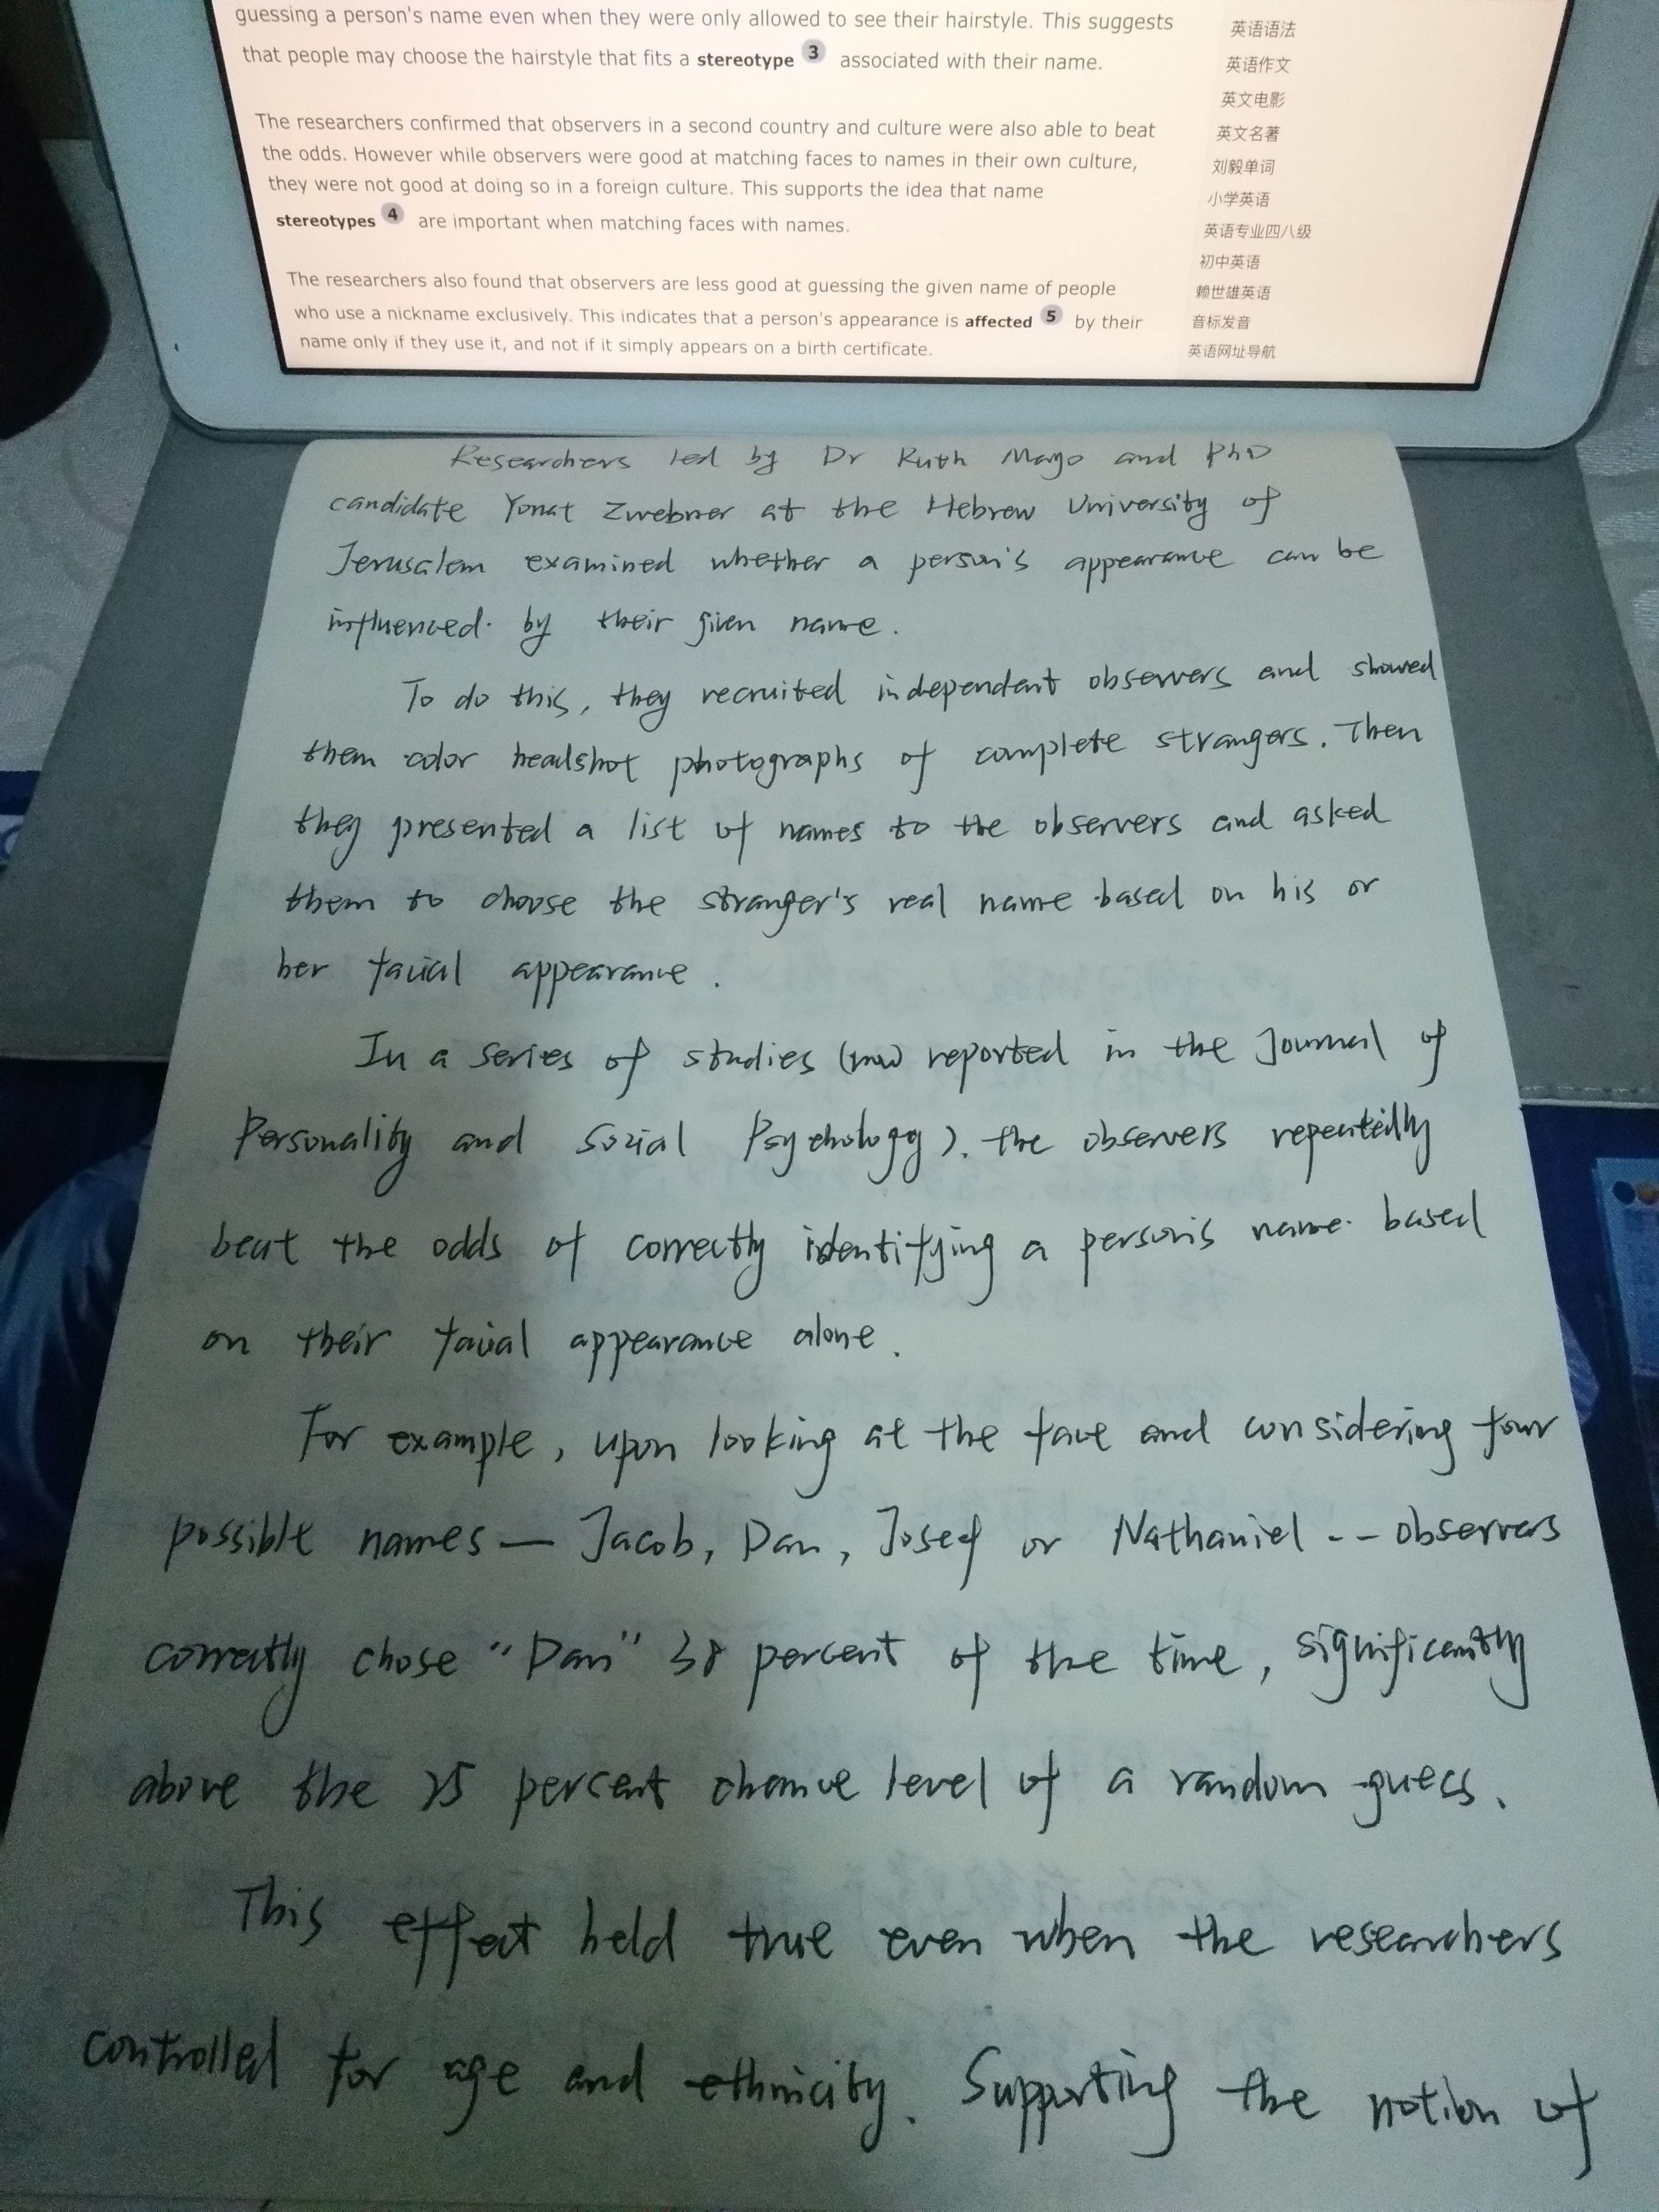 guessing a person's name even when they were only allowed to see their hairstyle. This suggests
that people may choose the hairstyle that fits a stereotype 3 associated with their name.
The researchers confirmed that observers in a second country and culture were also able to beat
the odds. However while observers were good at matching faces to names in their own culture,
they were not good at doing so in a foreign culture. This supports the idea that name
stereotypes 4 are important when matching faces with names.
The researchers also found that observers are less good at guessing the given name of people
who use a nickname exclusively. This indicates that a person's appearance is affected 5 by their
name only if they use it, and not if it simply appears on a birth certificate.
英语语法
英语作文
英文电影
英文名著
刘毅单词
小学英语
英语专业四八级
初中英语
赖世雄英语
音标发音
英语网址导航
Researchers led by Dr Ruth Mayo and PhD
candidate Yonat Zwebner at the Hebrew University of
Jerusalem examined whether a person's appearance can be
influenced by their given name.
To do this, they recruited independent observers and showed
them color headshot photographs of complete strangers. Then
they presented a list of names to the observers and asked
them to choose the stranger's real name based on his or
her facial appearance.
In a series of studies (now reported in the Journal of
Personality and Social Psychology). the observers repeatedly
beat the odds of correctly identifying a person's name based
on their facial appearance alone.
For example, upon looking at the face and considering four
possible names — Jacob, Dan, Josef or Nathaniel -- observers
correctly chose "Dan" 38 percent of the time, significantly
above the 25 percent chance level of a random guess.
This effect held true even when the researchers
controlled for age and ethnicity. Supporting the notion of